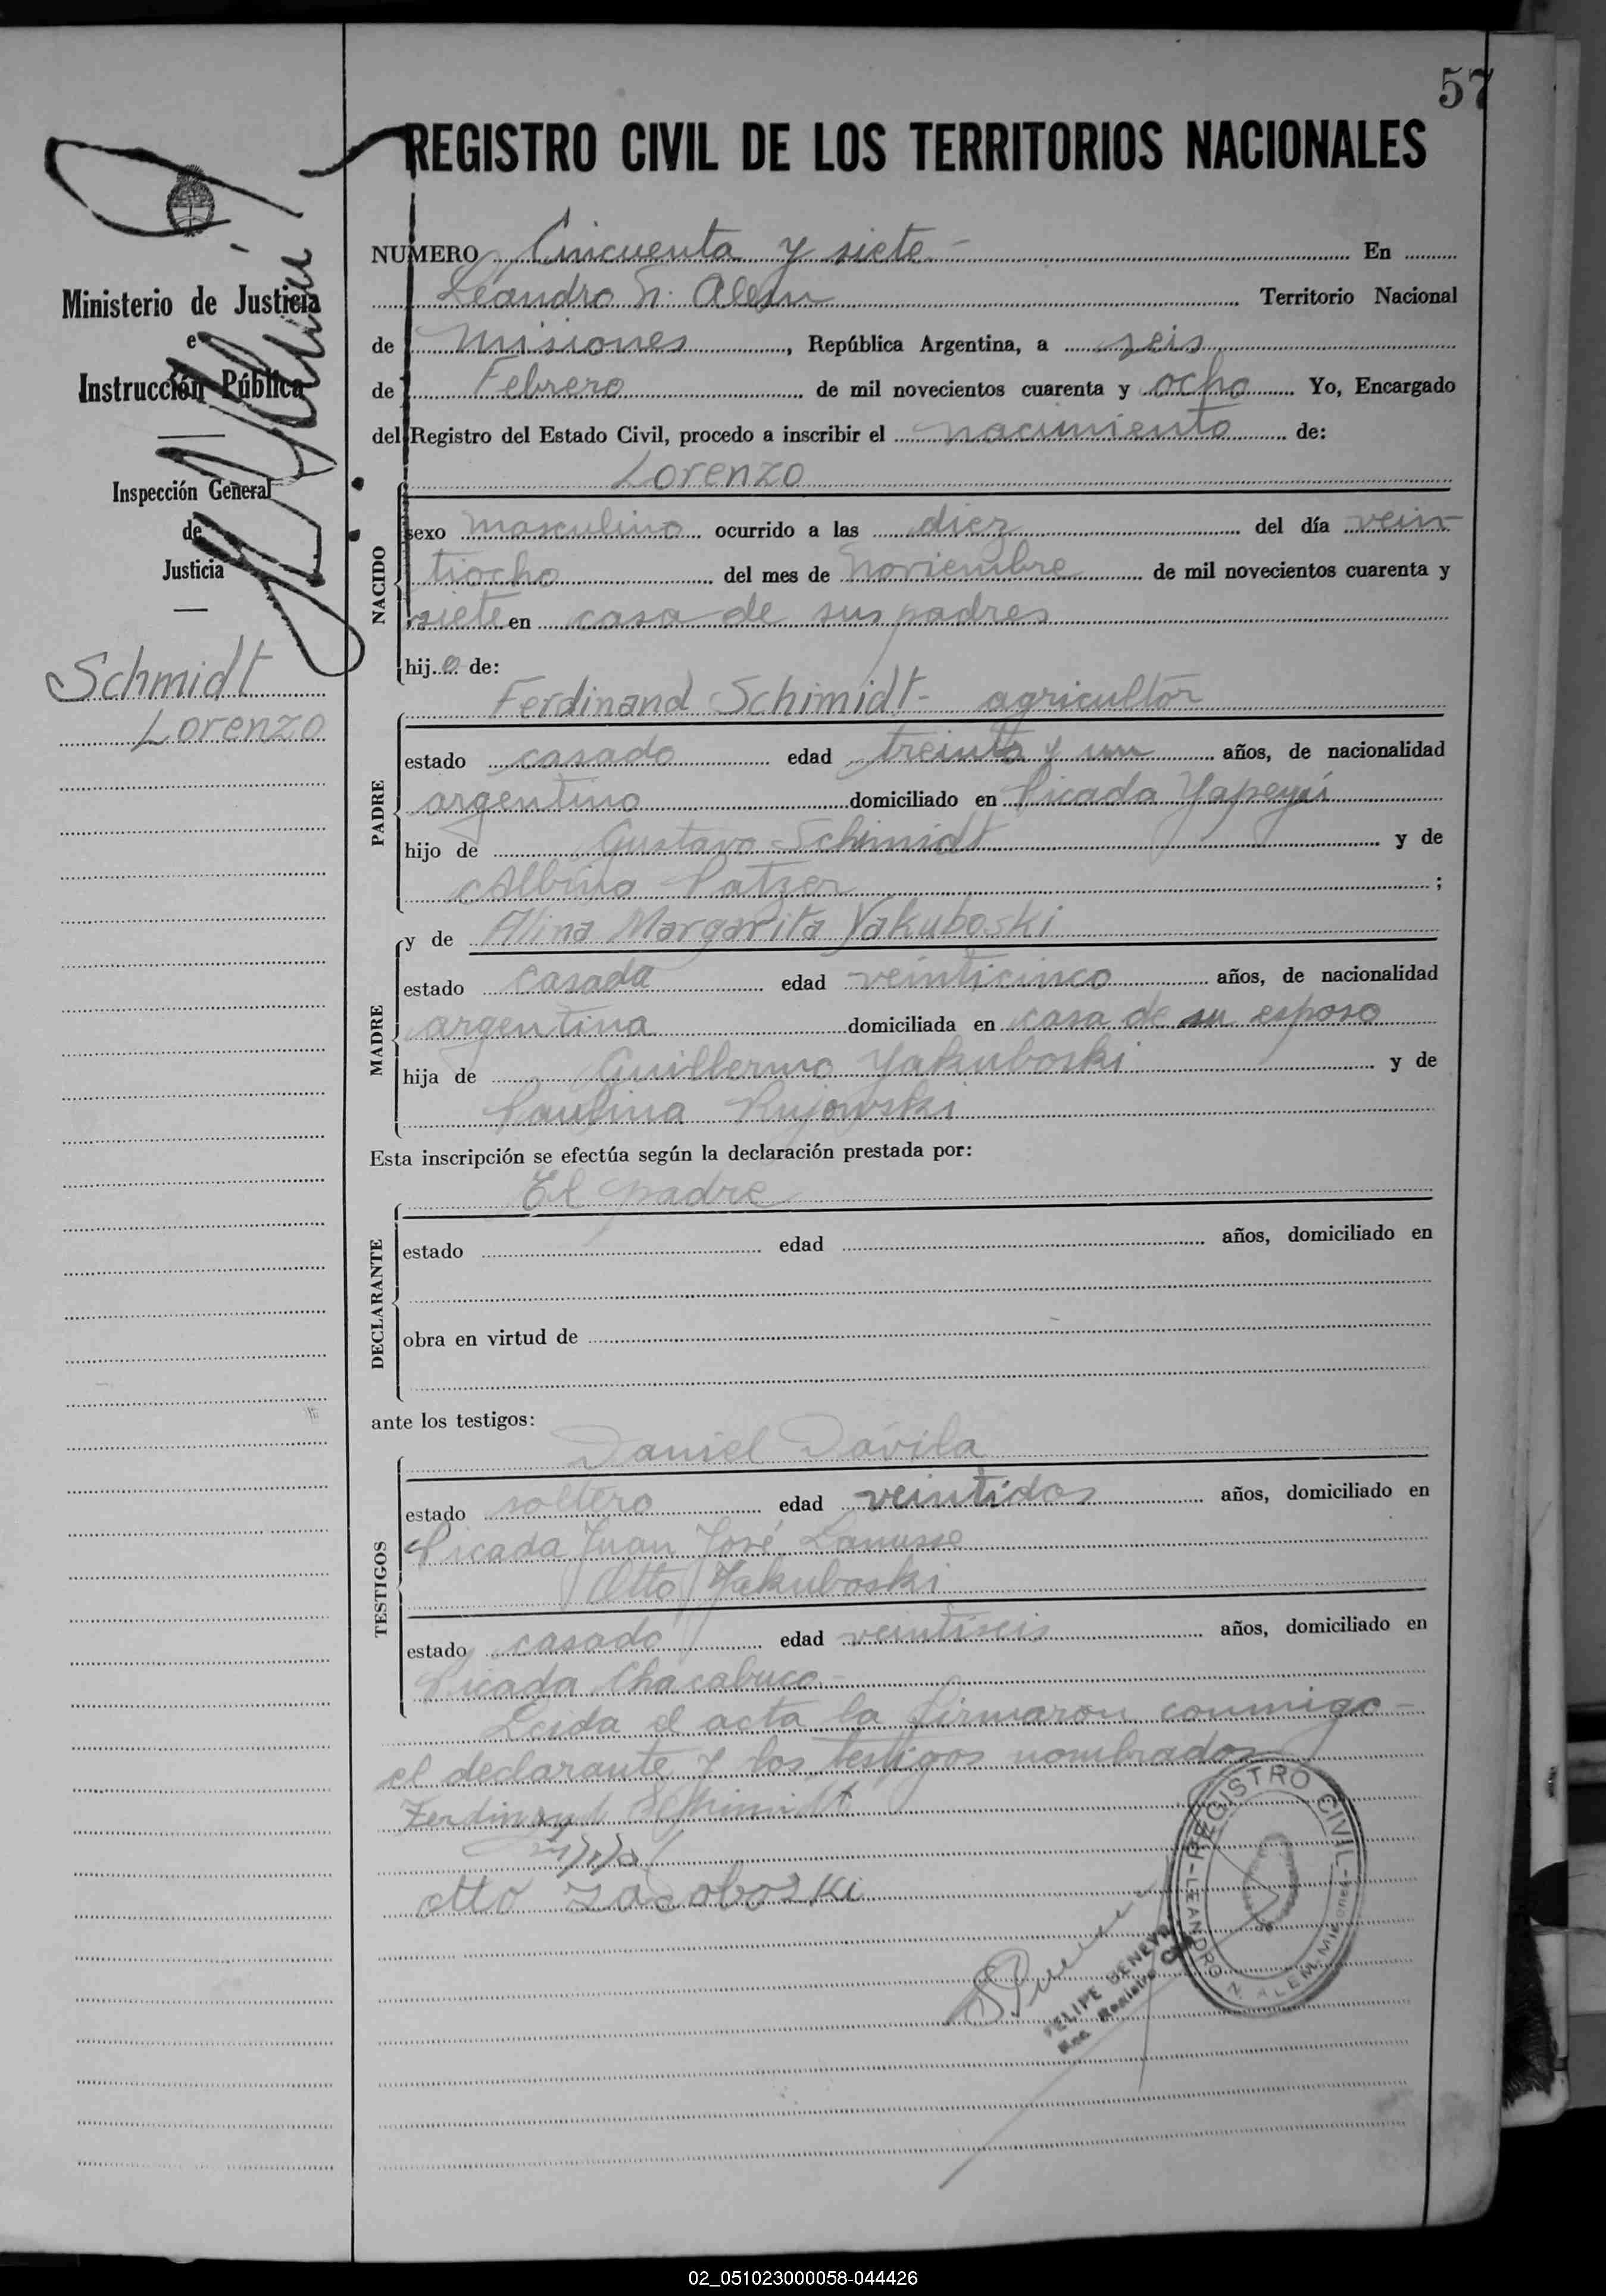 57
REGISTRO CIVIL DE LOS TERRITORIOS NACIONALES
Ministerio de Justicia
e
Instrucción Pública
Inspección General
de
Justicia
Schmidt
Lorenzo
NUMERO Cincuenta y siete - En
Leandro N. Alem Territorio Nacional
de Misiones, República Argentina, a seis
de Febrero de mil novecientos cuarenta y ocho Yo, Encargado
del Registro del Estado Civil, procedo a inscribir el nacimiento de:
NACIDO
Lorenzo
sexo masculino ocurrido a las diez del día vein
tiocho del mes de Noviembre de mil novecientos cuarenta y
siete en casa de sus padres
hijo de:
PADRE
Ferdinand Schimidt - agricultor
estado casado edad treinta y un años, de nacionalidad
argentino domiciliado en Picada Yapeyú
hijo de Gustavo Schimidt y de
Albina Patzer ;
MADRE
y de Alina Margarita Yakuboski
estado casada edad veinticinco años, de nacionalidad
argentina domiciliada en casa de su esposo
hija de Guillermo Yakuboski y de
Paulina Rujowski
Esta inscripción se efectúa según la declaración prestada por:
DECLARANTE
El padre
estado edad años, domiciliado en
obra en virtud de
ante los testigos:
TESTIGOS
Daniel Davila
estado soltero edad veintidos años, domiciliado en
Picada Juan José Lanusse
Otto Yakuboski
estado casado edad veintiseis años, domiciliado en
Picada Chacabuco -
Leida el acta la firmaron conmigo -
el declarante y los testigos nombrados
Ferdinand Schimidt
otto
REGISTRO CIVIL - LEANDRO N. ALEM - Misiones
FELIPE
Enc. Registro Civil
02_051023000058-044426